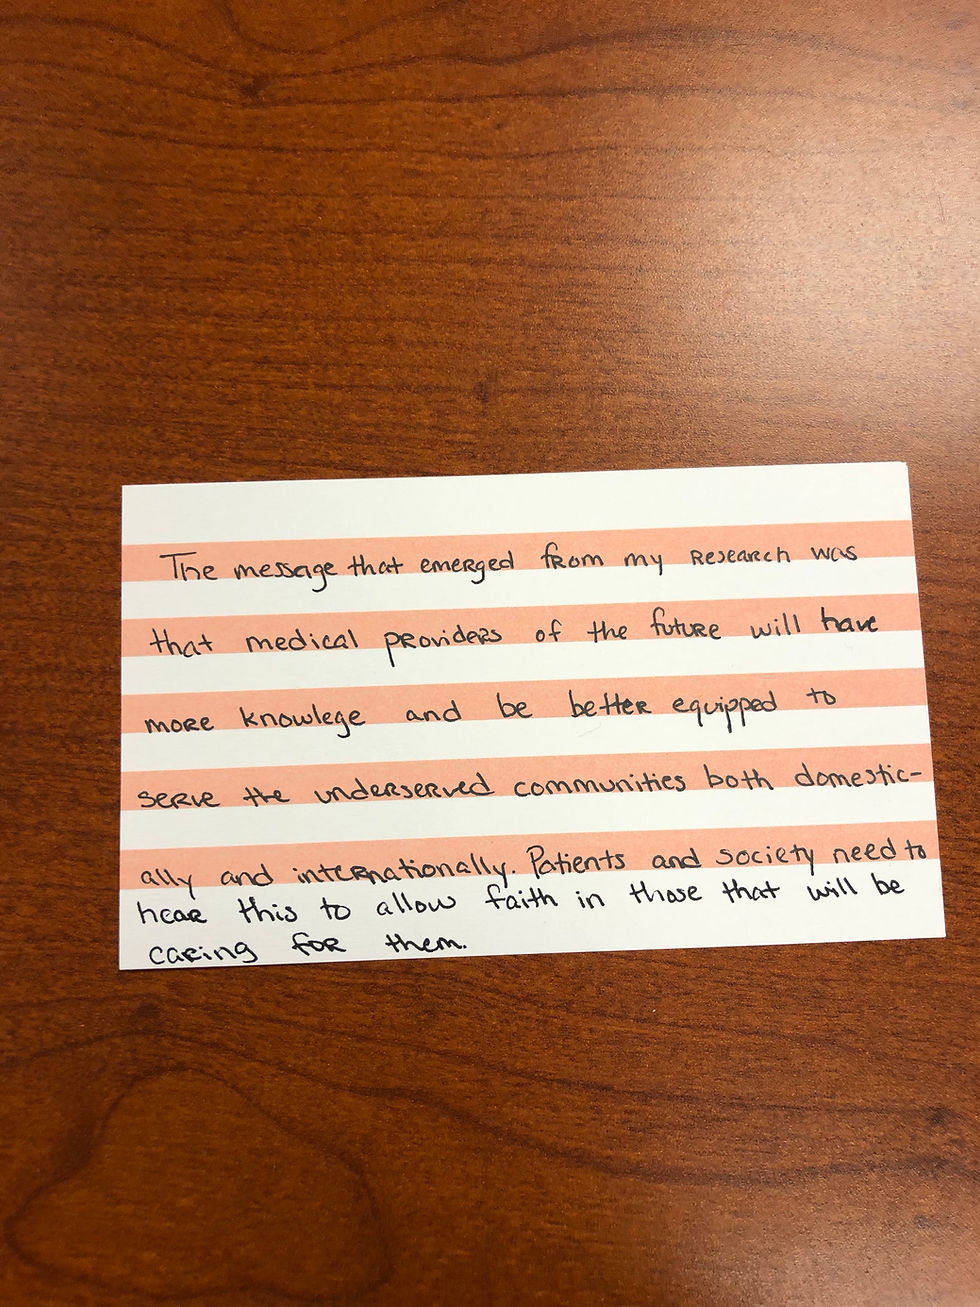 The message that emerged from my research was
that medical providers of the future will have
more knowlege and be better equipped to
serve the underserved communities both domestic-
ally and internationally. Patients and society need to
hear this to allow faith in those that will be
caring for them.